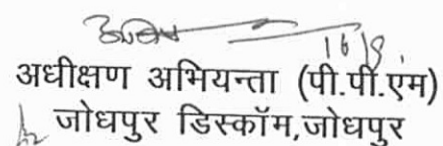 16/8
अधीक्षण अभियन्ता (पी.पी.एम)
जोधपुर डिस्कॉम,जोधपुर